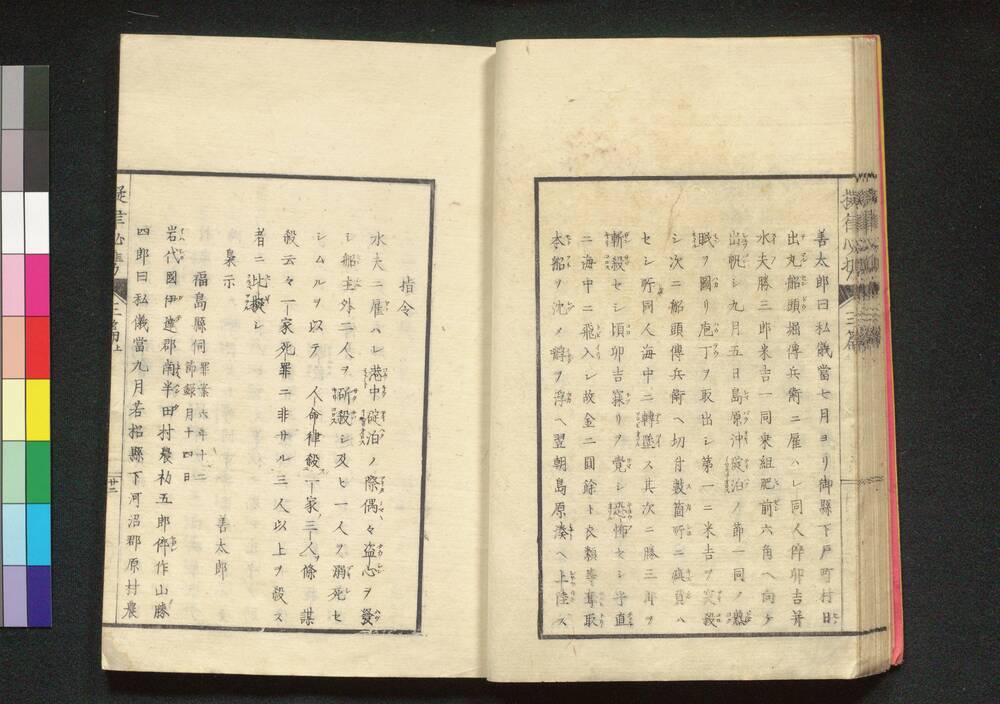 善太郎曰私儀當七月ヨリ御縣下戸町村日
出丸船頭堀傳兵衛ニ雇ハレ同人倅卯吉并
水夫勝三郎米吉一同乗組肥前六角ヘ向ケ
出帆シ九月五日島原沖碇泊ノ節一同ノ熟
眠ヲ圖リ庖丁ヲ取出シ第一ニ米吉ヲ突殺
シ次ニ船頭傳兵衛ヘ切付數箇所ニ疵負ハ
セシ所同人海中ニ轉墜ス其次ニ勝三郎ヲ
斬殺セシ頃卯吉寐リヲ覺シ恐怖セシ乎直
ニ海中ニ飛入シ故金二圓餘ト衣類等奪取
本船ヲ沈メ艀ヲ浮ヘ翌朝島原湊ヘ上陸ス
指令
水夫ニ雇ハレ港中碇泊ノ際偶々盗心ヲ發
シ船主外二人ヲ斫殺シ及ヒ一人ヲ溺死セ
シムルヲ以テ人命律殺一家三人條謀
殺云々一家死罪ニ非サル三人以上ヲ殺ス
者ニ此擬シ
梟示 善太郎
福島縣伺 罪案六年十二
節録月十四日
岩代國伊達郡南半田村農朸五郎倅作山藤
四郎曰私儀當九月若招縣下河沼郡原村農